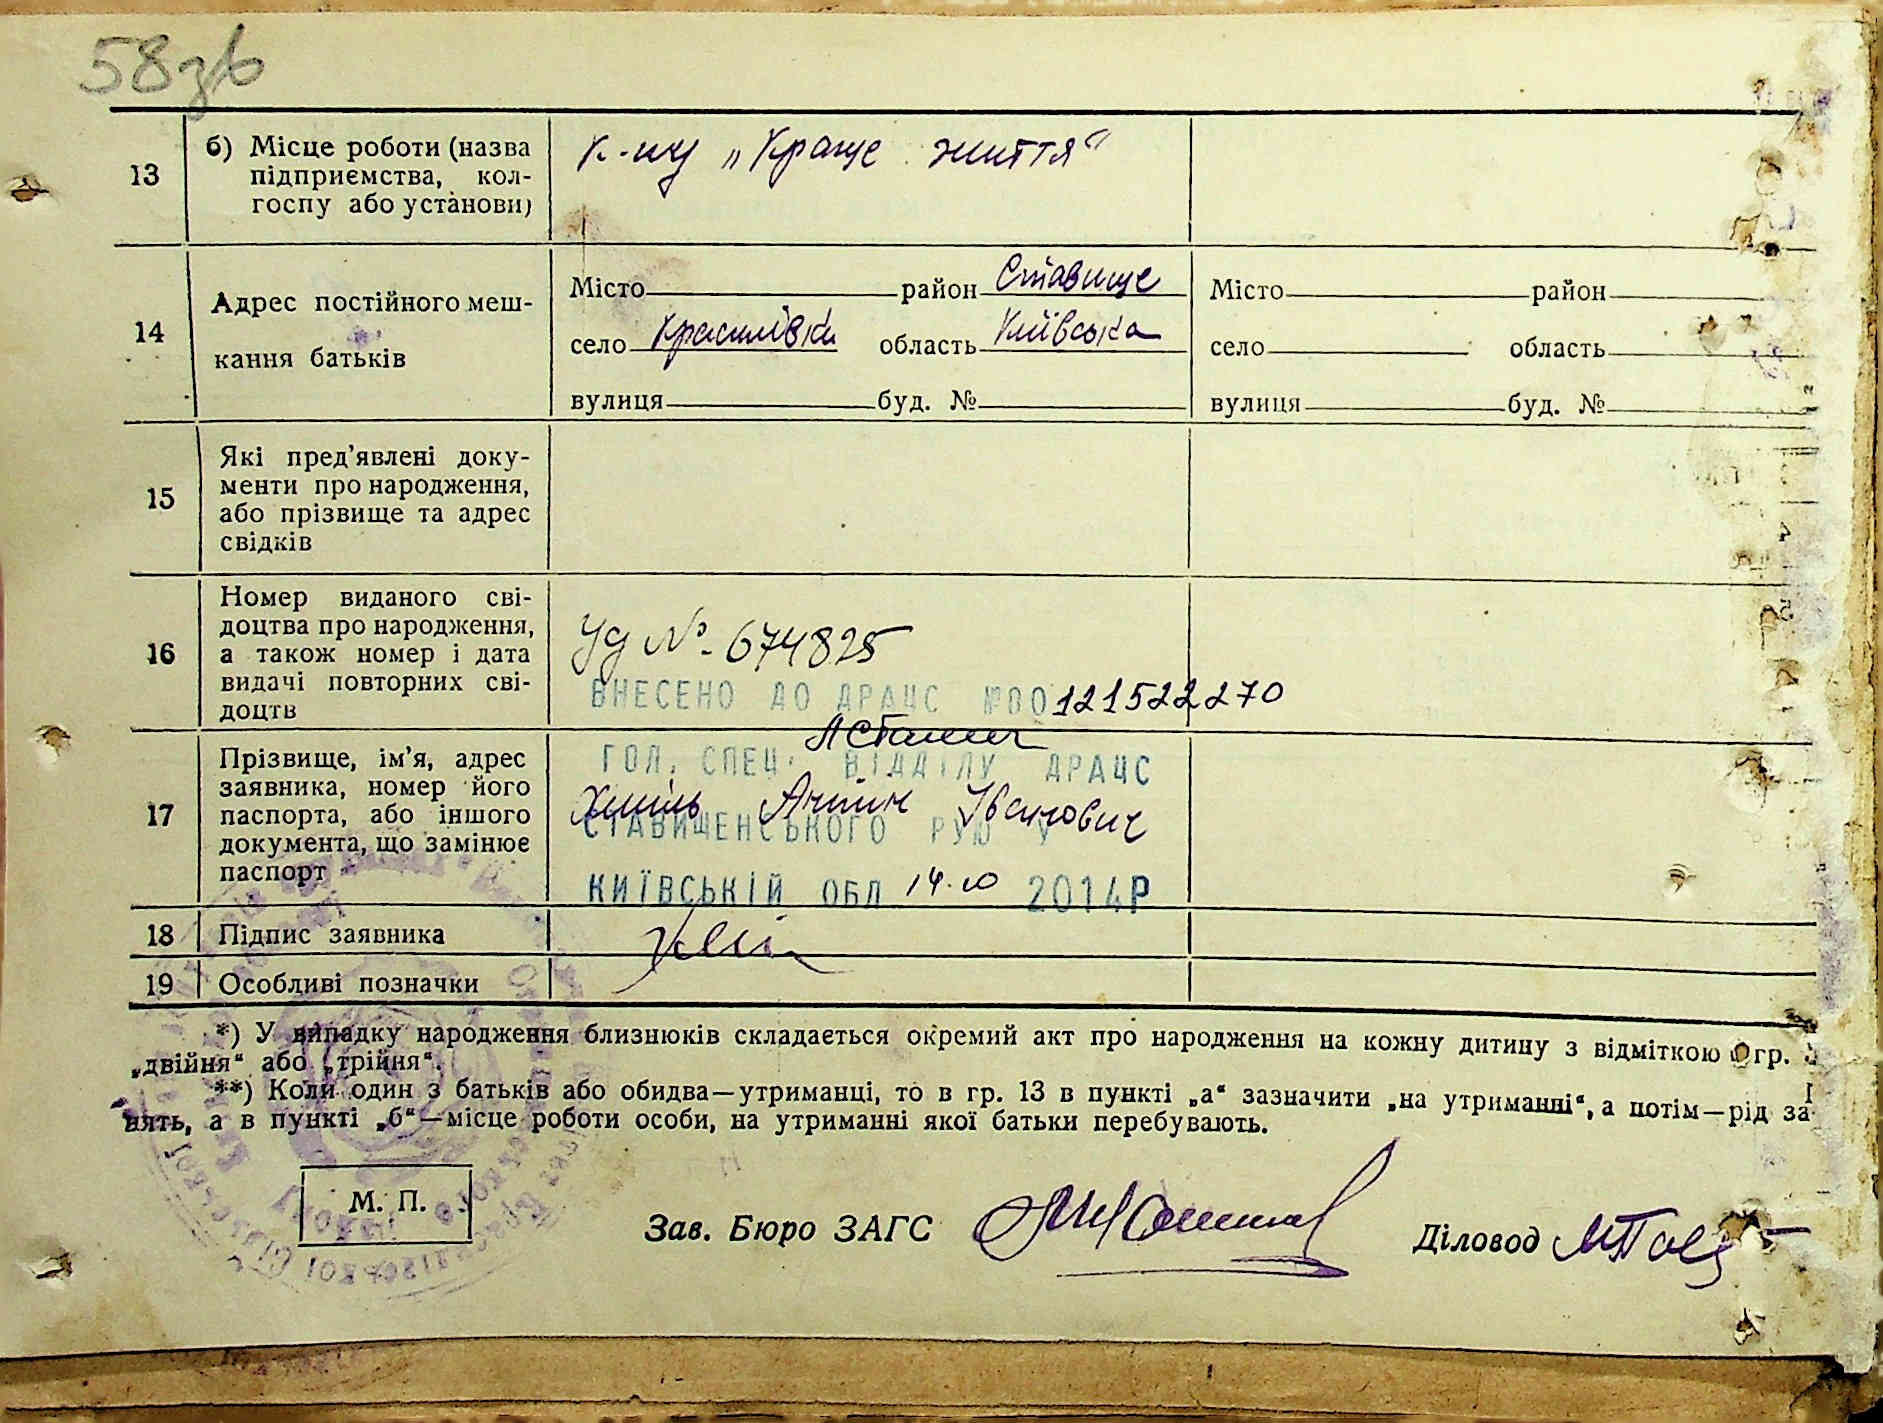 58зв
13
б) Місце роботи (назва
підприємства, кол-
госпу або установи)
к-пу „Краще життя“
14
Адрес постійного меш-
кання батьків
Місто район Ставище
село Красилівка область Київська
вулиця буд. №
Місто район
село область
вулиця буд. №
15
Які пред’явлені доку-
менти про народження,
або прізвище та адрес
свідків
16
Номер виданого сві-
доцтва про народження,
а також номер і дата
видачі повторних сві-
доцтв
УД № 674825
ВНЕСЕНО ДО ДРАЦС №00121522270
17
Прізвище, ім’я, адрес
заявника, номер його
паспорта, або іншого
документа, що замінює
паспорт
ГОЛ. СПЕЦ. ВІДДІЛУ ДРАЦС
Хміль Антін Іванович
СТАВИЩЕНСЬКОГО РУЮ У
КИЇВСЬКІЙ ОБЛ 14.10 2014Р
18
Підпис заявника
19
Особливі позначки
*) У випадку народження близнюків складається окремий акт про народження на кожну дитину з відміткою в гр.
„двійня“ або „трійня“.
**) Коли один з батьків або обидва—утриманці, то в гр. 13 в пункті „а“ зазначити „на утриманні“, а потім—рід за
нять, а в пункті „б“—місце роботи особи, на утриманні якої батьки перебувають.
М. П.
Зав. Бюро ЗАГС
Діловод